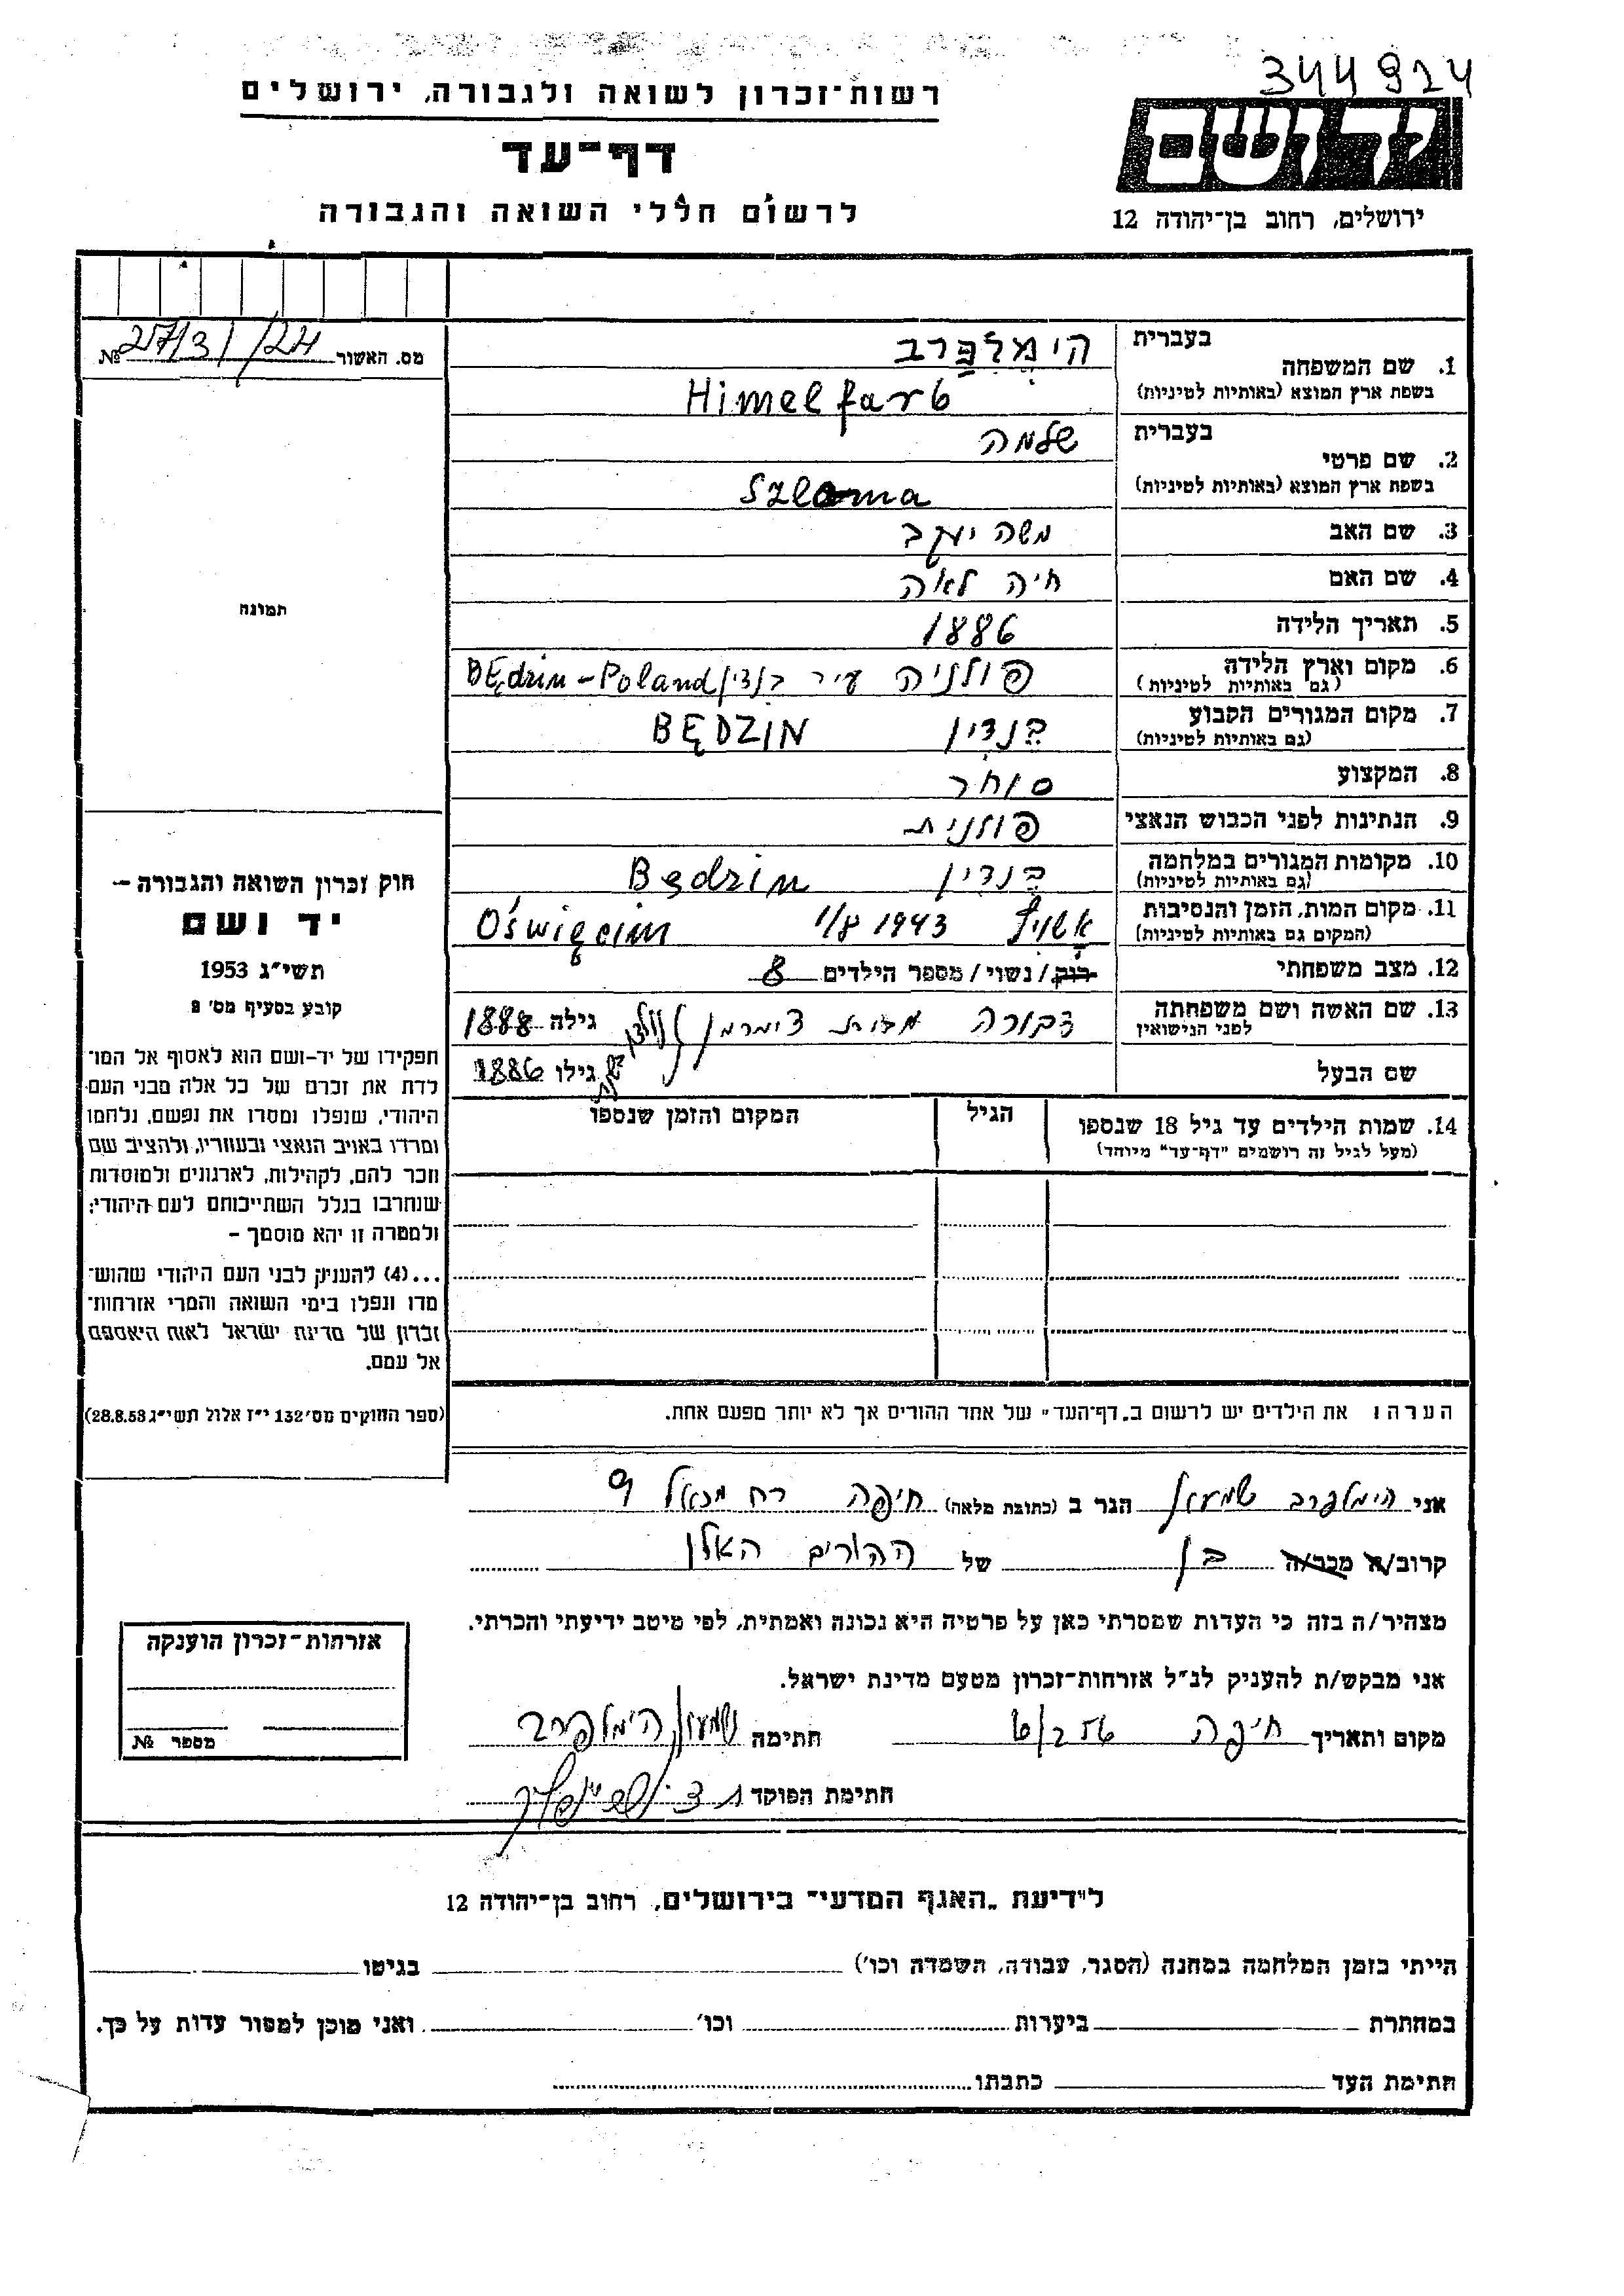 344924
רשות־זכרון לשואה ולגבורה, ירושלים
ידושם
דף־עד
לרשום חללי השואה והגבורה
ירושלים, רחוב בן־יהודה 12
מס. האשור № 27/3/124
בעברית
1. שם המשפחה
הימלפרב
בשפת ארץ המוצא (באותיות לטיניות)
Himelfarb
בעברית
2. שם פרטי
שלמה
בשפת ארץ המוצא (באותיות לטיניות)
Szloma
3. שם האב משה יעקב
4. שם האם חיה לאה
5. תאריך הלידה 1886
6. מקום וארץ הלידה פולניה עיר בנדין Będzin - Poland
(גם באותיות לטיניות)
7. מקום המגורים הקבוע בנדין BĘDZIN
(גם באותיות לטיניות)
8. המקצוע סוחר
9. הנתינות לפני הכבוש הנאצי פולנית
10. מקומות המגורים במלחמה בנדין Będzin
(גם באותיות לטיניות)
11. מקום המות, הזמן והנסיבות אשויץ 1/8 1943 Oświęcim
(המקום גם באותיות לטיניות)
12. מצב משפחתי רוק / נשוי / מספר הילדים 8
13. שם האשה ושם משפחתה דבורה מבית צימרמן גילה 1888
לפני הנישואין
שם הבעל גילו 1886
14. שמות הילדים עד גיל 18 שנספו הגיל המקום והזמן שנספו
(מעל לגיל זה רושמים "דף־עד" מיוחד)
הערה: את הילדים יש לרשום ב„דף־העד" של אחד ההורים אך לא יותר מפעם אחת.
תמונה
חוק זכרון השואה והגבורה –
יד ושם
תשי״ג 1953
קובע בסעיף מס׳ 2
תפקידו של יד-ושם הוא לאסוף אל המו־
לדת את זכרם של כל אלה מבני העם
היהודי, שנפלו ומסרו את נפשם, נלחמו
ומרדו באויב הנאצי ובעוזריו, ולהציב שם
וזכר להם, לקהילות, לארגונים ולמוסדות
שנחרבו בגלל השתייכותם לעם היהודי;
ולמטרה זו יהא מוסמך –
...(4) להעניק לבני העם היהודי שהוש־
מדו ונפלו בימי השואה והמרי אזרחות־
זכרון של מדינת ישראל לאות היאספם
אל עמם.
(ספר החוקים מס׳ 132 י״ז אלול תשי״ג 28.8.53)
אני הימלפרב שמעון הגר ב (כתובת מלאה) חיפה רח מיכאל 9
קרוב/ה מכר/ה בן של ההורים האלן
מצהיר/ה בזה כי העדות שמסרתי כאן על פרטיה היא נכונה ואמתית, לפי מיטב ידיעתי והכרתי.
אני מבקש/ת להעניק לנ״ל אזרחות־זכרון מטעם מדינת ישראל.
מקום ותאריך חיפה חתימה שמעון הימלפרב
חתימת הפוקד
אזרחות־זכרון הוענקה
מספר №
לידיעת „האגף המדעי" בירושלים, רחוב בן־יהודה 12
הייתי בזמן המלחמה במחנה (הסגר, עבודה, השמדה וכו׳) בגיטו
במחתרת ביערות וכו׳ ואני מוכן למסור עדות על כך.
חתימת העד כתבתו